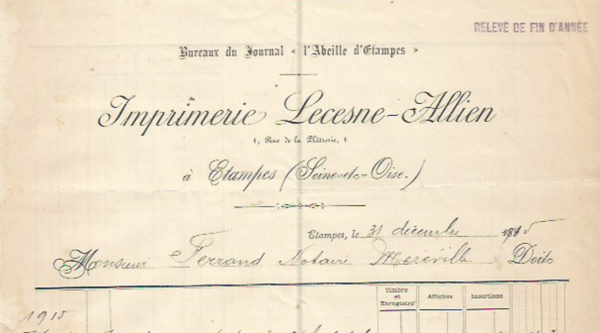 RELEVÉ DE FIN D'ANNÉE
Bureaux du Journal « l'Abeille d'Etampes »
Imprimerie Lecesne-Allien
4, Rue de la Plâtrerie, 4
à Etampes (Seine-et-Oise.)
Etampes, le 31 décembre 1915
Monsieur Ferrand Notaire Méréville Doit:
Timbre et Enregistre^t Affiches Insertions
1915